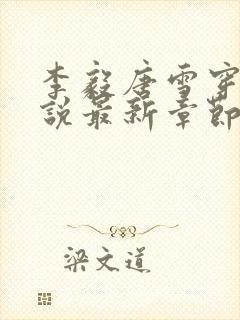 李毅唐雪穿
說最新章節
梁文道